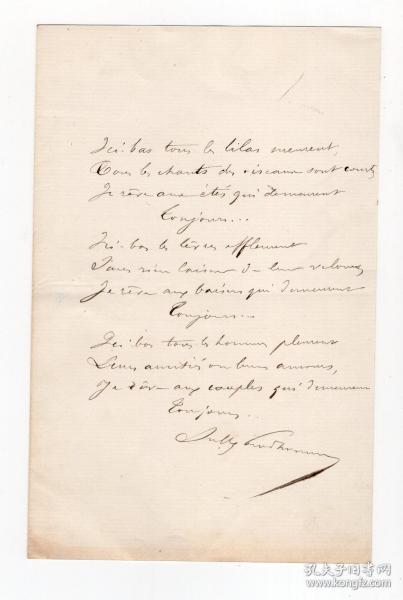 Ici-bas tous les lilas meurent,
Tous les chants des oiseaux sont courts
Je rêve aux étés qui demeurent
Toujours...
Ici-bas les lèvres effleurent
Sans rien laisser de leur velours,
Je rêve aux baisers qui demeurent
Toujours...
Ici-bas tous les hommes pleurent
Leurs amitiés ou leurs amours,
Je rêve aux couples qui demeurent
Toujours...
Sully Prudhomme
孔夫子旧书网
kongfz.com